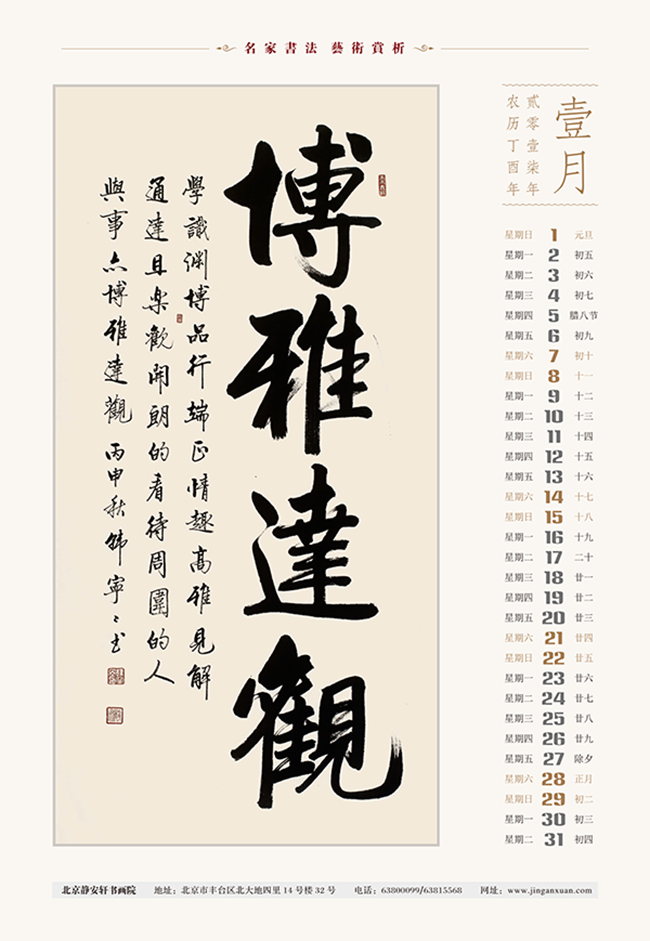 名家書法 藝術賞析
博雅達觀
學識渊博品行端正情趣高雅見解
通達且楽歡開朗的看待周圍的人
與事亦博雅達觀 丙申秋韩寧寧书
壹月
贰零壹柒年
农历丁酉年
星期日 1 元旦
星期一 2 初五
星期二 3 初六
星期三 4 初七
星期四 5 腊八节
星期五 6 初九
星期六 7 初十
星期日 8 十一
星期一 9 十二
星期二 10 十三
星期三 11 十四
星期四 12 十五
星期五 13 十六
星期六 14 十七
星期日 15 十八
星期一 16 十九
星期二 17 二十
星期三 18 廿一
星期四 19 廿二
星期五 20 廿三
星期六 21 廿四
星期日 22 廿五
星期一 23 廿六
星期二 24 廿七
星期三 25 廿八
星期四 26 廿九
星期五 27 除夕
星期六 28 正月
星期日 29 初二
星期一 30 初三
星期二 31 初四
北京静安轩书画院 地址：北京市丰台区北大地四里14号楼32号 电话：63800099/63815568 网址：www.jinganxuan.com